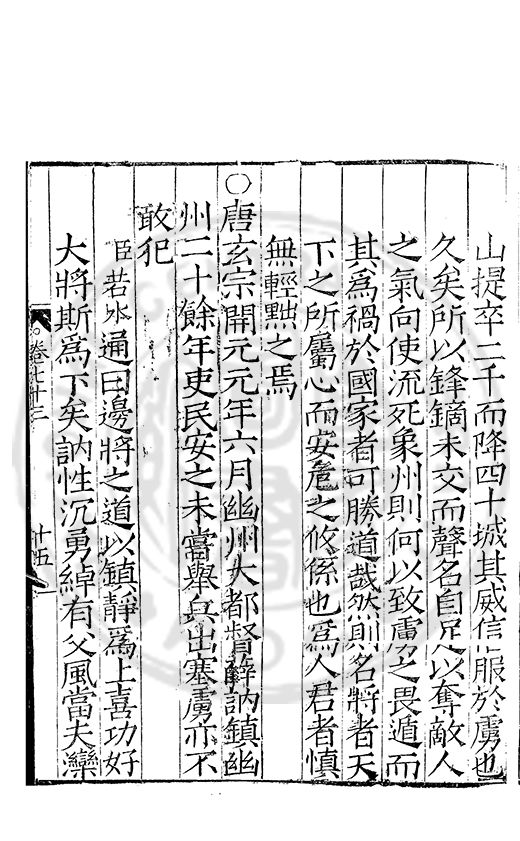 山提卒二千而降四十城其威信服於虜也
久矣所以鋒鏑未交而聲名自足以奪敵人
之氣向使流死象州則何以致虜之畏遁而
其爲禍於國家者可勝道哉然則名將者天
下之所屬心而安危之攸係也爲人君者慎
無輕黜之焉
○唐玄宗開元元年六月幽州大都督薛訥鎮幽
州二十餘年吏民安之未嘗舉兵出塞虜亦不
敢犯
臣若水通曰邊將之道以鎮靜爲上喜功好
大將斯爲下矣訥性沉勇綽有父風當夫灤
卷七十三
十五